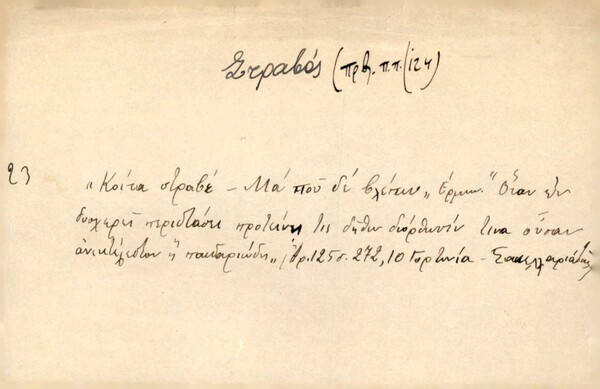 Στραβός (πρβ. π.π. 124)
23
"Κοίτα στραβέ – Μά πού δέ βλέπω" Ερμ. Όταν εἰς
δυσχερῆ περίστασι προτείνῃ τις δῆθεν διόρθωσίν τινα οὖσαν
ἀνεκτέλεστον ἤ παιδαριώδη" Αρ. 125 σ. 272, 10 Γορτυνία – Σακελλαριάδης